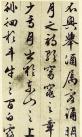 不興舉酒屬客誦明
月之詩歌窈窕之章
少焉月出於東山之上
徘徊於斗牛之間白露